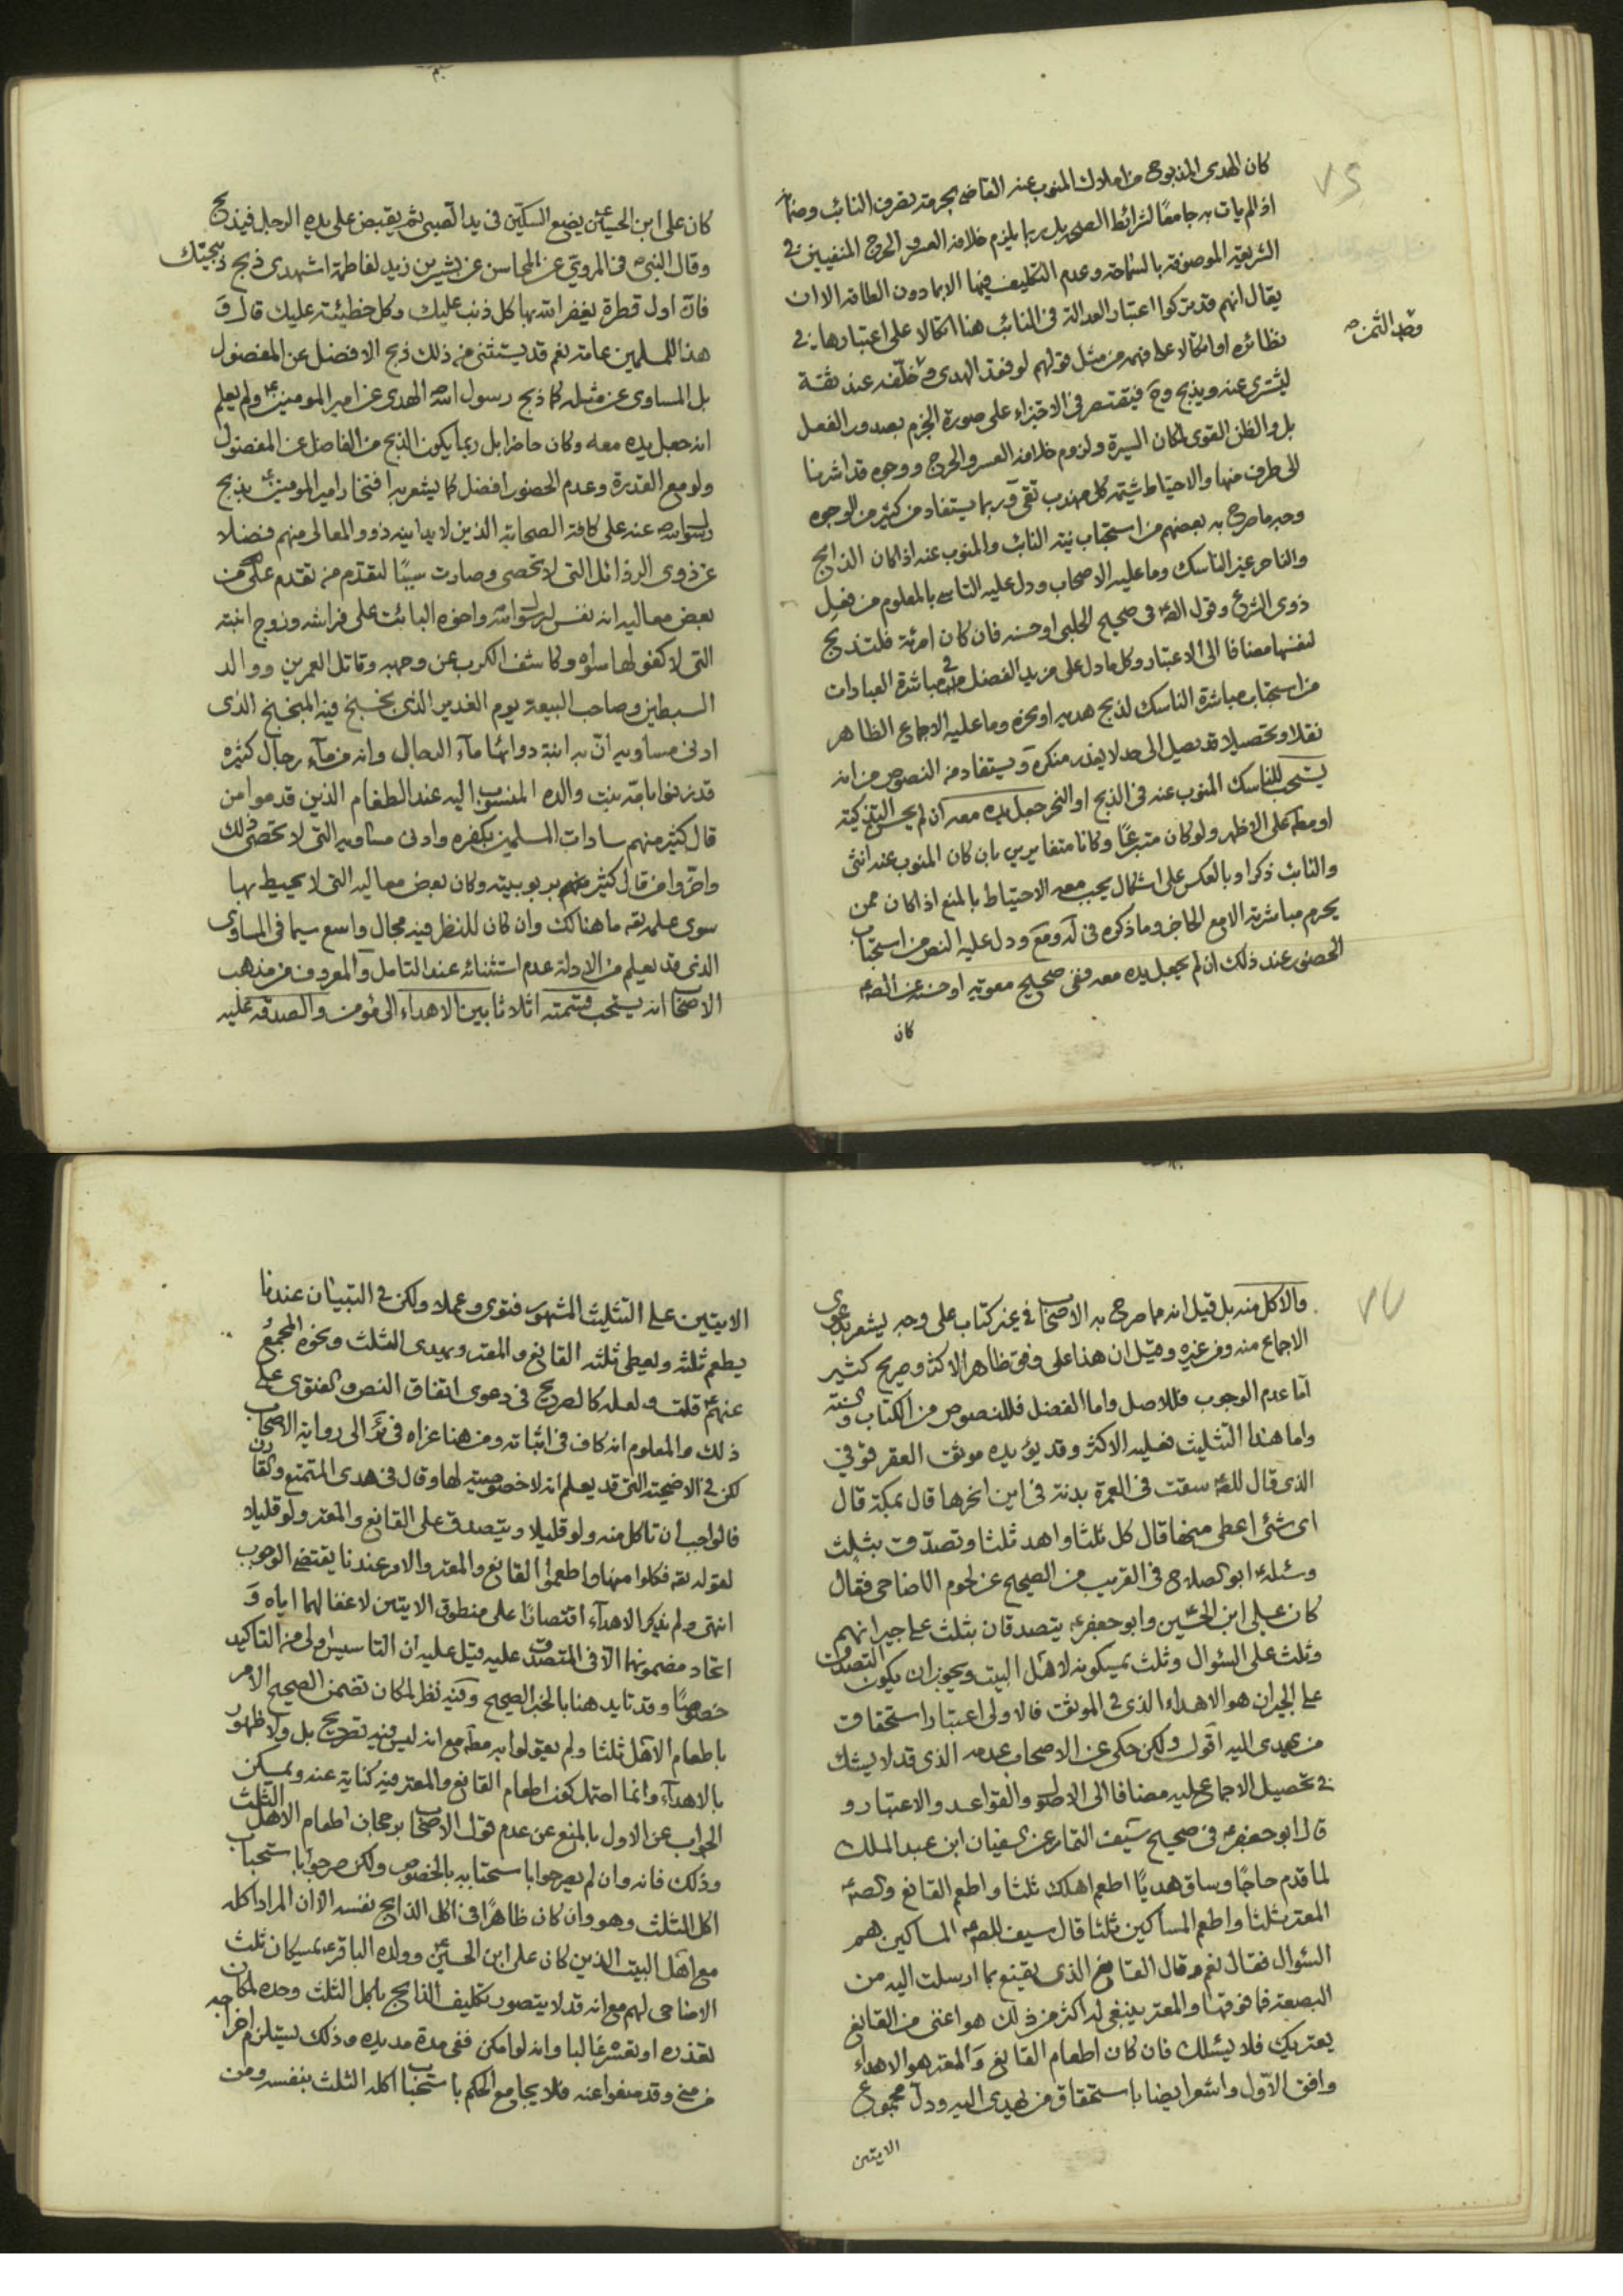 ٧٦
كان الهدى المذبوح من املاك المنوب عنه القاضى بحرمته تصرف النائب وضمانه
اذا لم يات به جامعًا لشرائط الصحه بل ربما يلزم خلافه العسر والحرج المنفيين في
الشريعة الموصوفة بالسماحة وعدم التكليف فيها الا بما دون الطاقة الا ان
يقال انهم قد يتركوا اعتبار العدالة فى النائب هنا اتكالا على اعتبارها في
نظائره او اتكالا على فهمه من مثل قولهم لو فقد الهدى وخلّفه عند ثقة
وجد الثمن صح
ليشترى عنه ويذبح وح فيقتصر فى الاجتزاء على صورة الجزم بصدور الفعل
بل والظن القوى لمكان السيرة ولزوم خلافه العسر والحرج ووجوه قد اشرنا
الى طرف منها والاحتياط شيمة كل مهذب تقى وربما يستفاد من كثير من الوجوه
وجه ما صرح به بعضهم من استحباب نية النائب والمنوب عنه اذا كان الذابح
والناحر غير الناسك وما عليه الاصحاب ودل عليه التاسى بالمعلوم من فعل
ذوى الشرع وقول الصه فى صحيح الحلبى او حسنه فان كان امرئة فلتذبح
لنفسها مضافا الى الاعتبار وكل ما دل على مزيد الفضل فى مباشرة العبادات
من استحباب مباشرة الناسك لذبح هديه او نحره وما عليه الاجماع الظاهر
نقلا وتحصيلا قد يصل الى حد لا يعذر منكره ويستفاد من النصوص من انه
يستحب للناسك المنوب عنه فى الذبح او النحر جعل يده معه ان لم يحسن التذكية
او مطه على الاظهر ولو كان متبرعًا وكانا متغايرين بان كان المنوب عنه انثى
والنائب ذكرا وبالعكس على اشكال يجب معه الاحتياط بالمنع اذا كان ممن
يحرم مباشرته الا مع الحاجز وما ذكره فى له ومع ودل عليه النص من استحباب
الحضور عند ذلك ان لم يجعل يده معه ففى صحيح معوية او حسنه عن الصه
كان
كان على ابن الحسين يضع السكين فى يد الصبى ثم يقبض على يده الرجل فيذبح
وقال النبى ص فى المروى عن المحاسن عن بشير بن زيد لفاطمة اشهدى ذبح ذبيحتك
فان اول قطرة يغفر الله بها كل ذنب عليك وكل خطيئة عليك قال و
هذا للمسلمين عامة نعم قد يستثنى من ذلك ذبح الافضل عن المفضول
بل المساوى عن مثله كما ذبح رسول الله الهدى عن امير المومنين ع ولم يعلم
انه جعل يده معه وكان حاضرا بل ربما يكون الذبح من الفاضل عن المفضول
ولو مع القدرة وعدم الحضور افضل كما يشعر به افتخار امير المومنين بذبح
رسول الله ص عنه على كافة الصحابة الذين لا يدانيه ذوو المعالى منهم فضلا
عن ذوى الرذائل التى لا تحصى وصارت سببًا لتقدم من تقدم عليه من
بعض معاليه انه نفس لرسول الله واخوه البائت على فراشه وزوج ابنته
التى لا كفو لها سواه وكاشف الكرب عن وجهه وقاتل العمرين ووالد
السبطين وصاحب البيعة يوم الغدير الذى بخبخ فيه المبخبخ الذى
ادنى مساويه انّ به ابنة دوائها ماء الرجال وانه من ماء رجال كثيره
قد زنوا بامّه بنت والده المنسوب اليه عند الطغام الذين قدموا من
قال كثير منهم سادات المسلمين بكفره وادنى مساويه التى لا تحصى ذلك
واخّروا من قال كثير منهم بربوبيته وكان بعض معاليه التى لا يحيط بها
سوى علمه تعه ما هنالك وان كان للنظر فيه مجال واسع سيما فى المساوى
الذى قد يعلم من الادلة عدم استثنائه عند التامل والمعروف من مذهب
الاصحاب انه يستحب قسمته اثلاثا بين الاهداء الى مؤمن والصدقة عليه
٧٧
والاكل منه بل قيل انه ما صرح به الاصحاب فى غير كتاب على وجه يشعر بدعوى
الاجماع منه ومن غيره وقيل ان هذا على وفق ظاهر الاكثر وصريح كثير
اما عدم الوجوب فللاصل واما الفضل فللنصوص من الكتاب والسنة
واما هذا التثليث فعليه الاكثر وقد يؤيده موثق العقرقوفى
الذى قال للصه سقت فى العمرة بدنة فى اين انحرها قال بمكة قال
اى شئ اعطى منها قال كل ثلثا واهد ثلثا وتصدق بثلث
وسئله ابو الصلاح فى القريب من الصحيح عن لحوم الاضاحى فقال
كان على ابن الحسين وابو جعفر ع يتصدقان بثلث على جيرانهم
وثلث على السؤال وثلث يمسكونه لاهل البيت ويجوز ان يكون التصدق
على الجيران هو الاهداء الذى فى الموثق فالاولى اعتبار استحقاق
من يهدى اليه اقول ولكن حكى عن الاصحاب عدمه الذى قد لا يشك
فى تحصيل الاجماع عليه مضافا الى الاطلاق والقواعد والاعتبار و
قال ابو جعفر ع فى صحيح سيف التمار عن سفيان ابن عبد الملك
لما قدم حاجًا وساق هديًا اطعم اهلك ثلثا واطعم القانع والصه
المعتر ثلثا واطعم المساكين ثلثا قال سيف للصه المساكين هم
السؤال فقال نعم وقال القانع الذى يقنع بما ارسلت اليه من
البضعة فما فوقها والمعتر ينبغى له اكثر من ذلك هو اغنى من القانع
يعتريك فلا يسئلك فان كان اطعام القانع والمعتر هو الاهداء
وافق الاول واشعر ايضا باستحقاق من يهدى اليه ودل مجموع
الايتين
الايتين على التثليث المشهور فتوى وعملا ولكن فى التبيان عندنا
يطعم ثلثه ويعطى ثلثه القانع والمعتر ويهدى الثلث ونحوه المجمع
عنهم ع قلت ولعله كالصريح فى دعوى اتفاق النص والفتوى على
ذلك والمعلوم انه كاف فى اثباته ومن هنا عزاه فى ئر الى رواية الاصحاب
لكن فى الاضحية التى قد يعلم انه لا خصوصية لها وقال فى هدى المتمتع والقارن
فالواجب ان تاكل منه ولو قليلا ويتصدق على القانع والمعتر ولو قليلا
لقوله تعه فكلوا منها واطعموا القانع والمعتر والامر عندنا يقتضى الوجوب
انتهى ولم يذكر الاهداء اقتصارًا على منطوق الايتين لاغفالهما اياه و
اتحاد مضمونهما الا فى المتصدق عليه قيل عليه ان التاسيس اولى من التاكيد
خصوصًا وقد تايد هنا بالخبر الصحيح وفيه نظر لمكان تضمن الصحيح الامر
باطعام الاهل ثلثا ولم يقولوا به مطه مع انه ليس فيه تصريح بل ولا ظهور
بالاهداء وانما احتمل كون اطعام القانع والمعتر فيه كناية عنه ويمكن
الجواب عن الاول بالمنع عن عدم قول الاصحاب برجحان اطعام الاهل الثلث
وذلك فانه وان لم يصرحوا باستحبابه بالخصوص ولكن صرحوا باستحباب
اكل الثلث وهو وان كان ظاهرًا فى اكل الذابح نفسه الا ان المراد اكله
مع اهل البيت الذين كان على ابن الحسين وولده الباقر ع يمسكان ثلث
الاضاحى لهم مع انه قد لا يتصور تكليف الذابح باكل الثلث وحده لمكان
تعذره او تعسره غالبا وانه لو امكن ففى مدة مديدة وذلك يستلزم اخراجه
من منى وقد منعوا عنه فلا يجامع الحكم باستحباب اكله الثلث بنفسه ومن